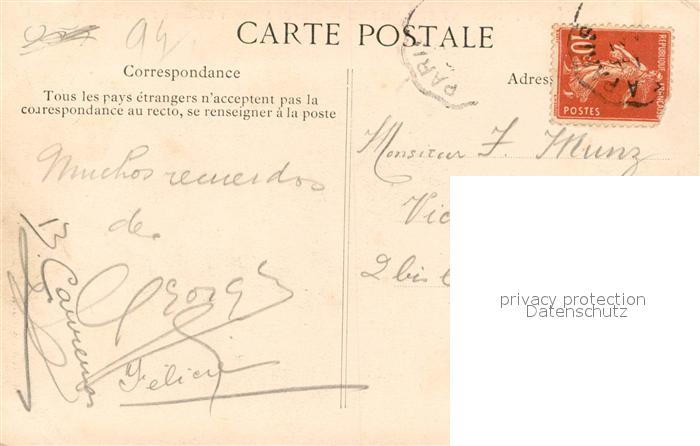 94
CARTE POSTALE
Correspondance
Tous les pays étrangers n'acceptent pas la
correspondance au recto, se renseigner à la poste
Muchos recuerdos
de
Georges
Félicie
13
Adres
PARIS
REPUBLIQUE
10
POSTES
Monsieur F. Munz
Vic
2 bis
privacy protection
Datenschutz